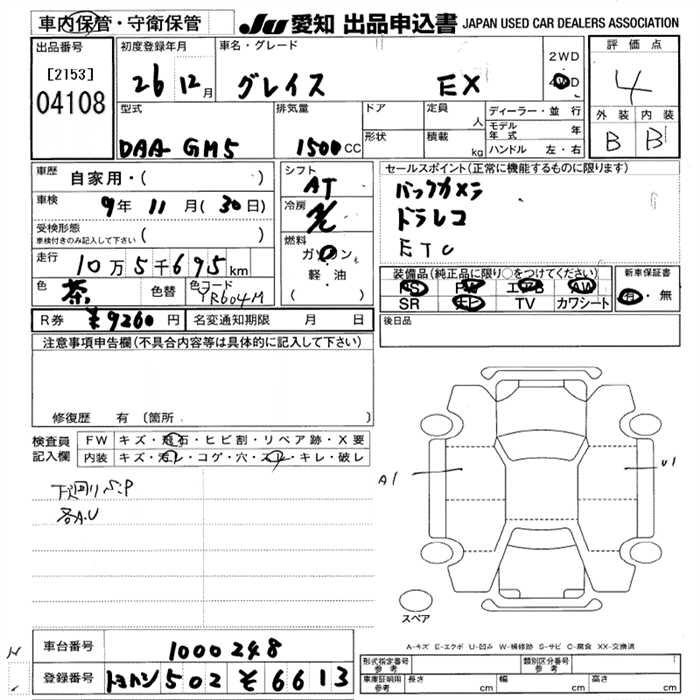 車内保管・守衛保管
JU 愛知 出品申込書 JAPAN USED CAR DEALERS ASSOCIATION
出品番号
[2153]
04108
初度登録年月
26 12月
車名・グレード
グレイス EX
2WD
4WD
評価点
4
外装 内装
B B
型式
DAA GM5
排気量
1500 CC
ドア
形状
定員 人
積載 kg
ディーラー・並行
モデル年式 年
ハンドル 左・右
車歴 自家用・( )
車検 9年 11月(30日)
受検形態
車検付きのみ記入して下さい ( )
走行 10万5千695km
色 茶 色替 色コード YR604M
シフト
AT
冷房
燃料
ガソリン
軽・油
( )
セールスポイント(正常に機能するものに限ります)
バックカメラ
ドラレコ
ETC
装備品(純正品に限り○をつけてください)
PS PW エアB AW
SR ナビ TV カワシート
新車保証書
有・無
R券 ¥9260円 名変通知期限 月 日
後日品
注意事項申告欄(不具合内容等は具体的に記入して下さい)
修復歴 有 (箇所
検査員記入欄
FW キズ・飛石・ヒビ割・リペア跡・X要
内装 キズ・汚レ・コゲ・穴・スレ・キレ・破レ
下廻りS.P
各A.U
A1
U1
スペア
A-キズ E-エクボ U-凹み W-補修跡 S-サビ C-腐食 XX-交換済
車台番号 1000248
登録番号 502 6613
形式指定番号 参考
類別区分番号 参考
車庫証明用 参考 長さ cm 幅 cm 高さ cm